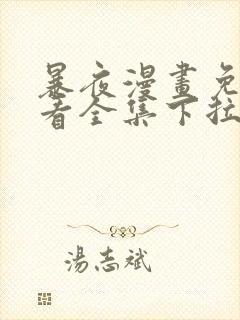 暴夜漫畫免
看全集下拉
湯志斌